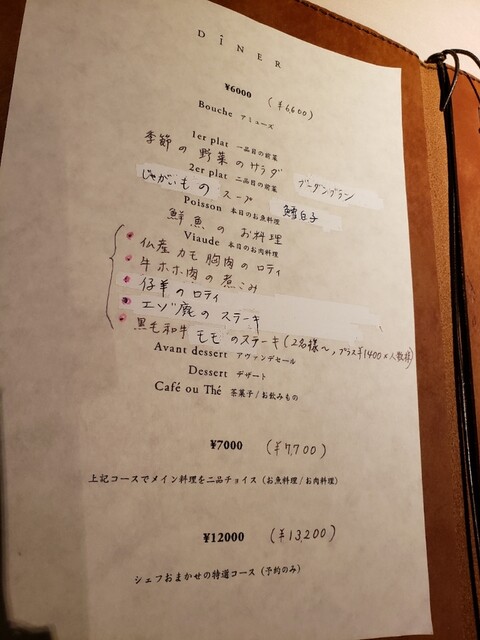 DÎNER
¥6000 (¥6,600)
Bouche アミューズ
1er plat 一品目の前菜
季節の野菜のサラダ ブーダンブラン
2er plat 二品目の前菜
じゃがいものスープ 鱈白子
Poisson 本日のお魚料理
鮮魚のお料理
Viaude 本日のお肉料理
仏産カモ胸肉のロティ
牛ホホ肉の煮こみ
仔羊のロティ
エゾ鹿のステーキ
黒毛和牛モモのステーキ(2名様〜, プラス¥1400×人数様)
Avant dessert アヴァンデセール
Dessert デザート
Café ou Thé 茶菓子/お飲みもの
¥7000 (¥7,700)
上記コースでメイン料理を二品チョイス (お魚料理/お肉料理)
¥12000 (¥13,200)
シェフおまかせの特選コース (予約のみ)